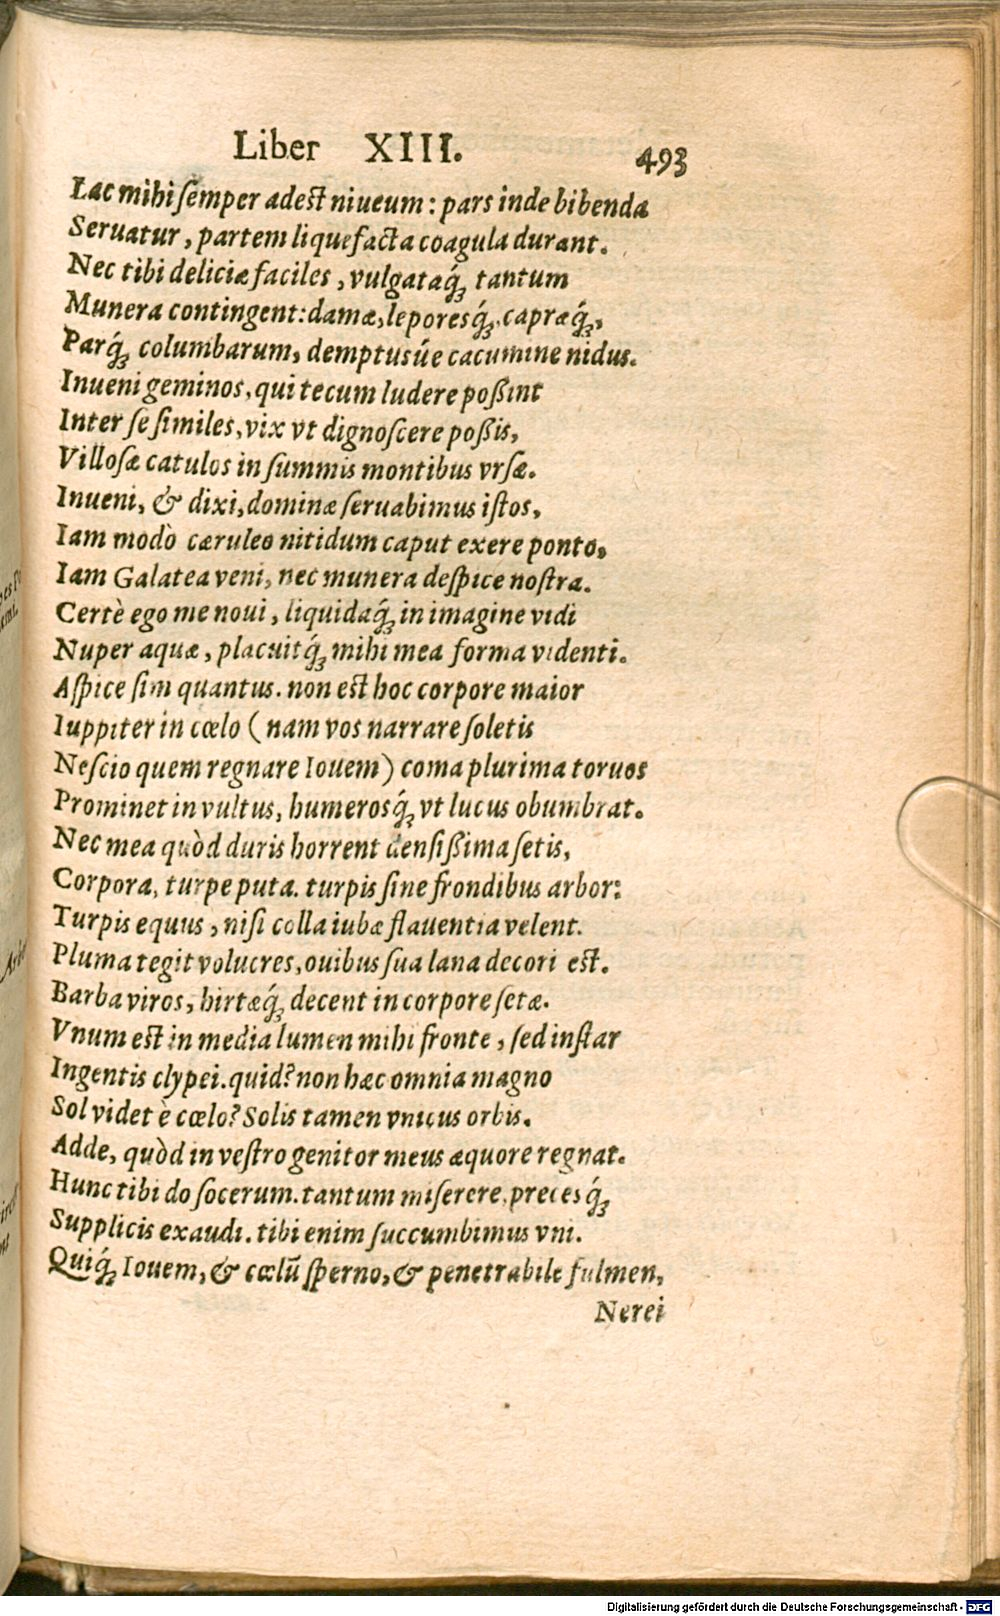 Liber XIII. 493
Lac mihi ſemper adest niueum: pars inde bibenda
Seruatur, partem liquefacta coagula durant.
Nec tibi deliciæ faciles, vulgataq́; tantum
Munera contingent: damæ, leporesq́;, capræq́;,
Parq́; columbarum, demptusúe cacumine nidus.
Inueni geminos, qui tecum ludere poßint
Inter ſe ſimiles, vix vt dignoſcere poßis,
Villoſæ catulos in ſummis montibus vrſæ.
Inueni, & dixi, dominæ ſeruabimus iſtos,
Iam modò cæruleo nitidum caput exere ponto,
Iam Galatea veni, nec munera deſpice noſtra.
Certè ego me noui, liquidaq́; in imagine vidi
Nuper aquæ, placuitq́; mihi mea forma videnti.
Aſpice ſim quantus. non est hoc corpore maior
Iuppiter in cœlo (nam vos narrare ſoletis
Neſcio quem regnare Iouem) coma plurima toruos
Prominet in vultus, humerosq́; vt lucus obumbrat.
Nec mea quòd duris horrent denſißima ſetis,
Corpora, turpe puta. turpis ſine frondibus arbor:
Turpis equus, niſi colla iubæ flauentia velent.
Pluma tegit volucres, ouibus ſua lana decori est.
Barba viros, hirtæq́; decent in corpore ſetæ.
Vnum est in media lumen mihi fronte, ſed inſtar
Ingentis clypei. quid? non hæc omnia magno
Sol videt è cœlo? Solis tamen vnicus orbis.
Adde, quòd in veſtro genitor meus æquore regnat.
Hunc tibi do ſocerum. tantum miſerere, precesq́;
Supplicis exaudi. tibi enim ſuccumbimus vni.
Quiq́; Iouem, & cœlũ ſperno, & penetrabile fulmen,
Nerei
Digitalisierung gefördert durch die Deutsche Forschungsgemeinschaft - DFG